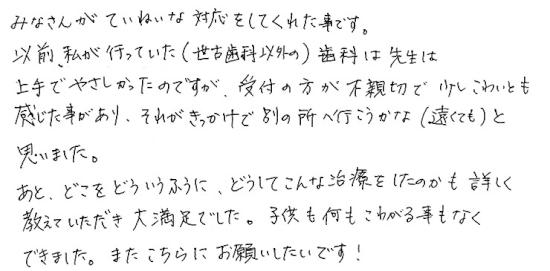 みなさんがていねいな対応をしてくれた事です。
以前、私が行っていた(世古歯科以外の)歯科は先生は
上手でやさしかったのですが、受付の方が不親切で少しこわいとも
感じた事があり、それがきっかけで別の所へ行こうかな(遠くても)と
思いました。
あと、どこをどういうふうに、どうしてこんな治療をしたのかも詳しく
教えていただき大満足でした。子供も何もこわがる事もなく
できました。またこちらにお願いしたいです!